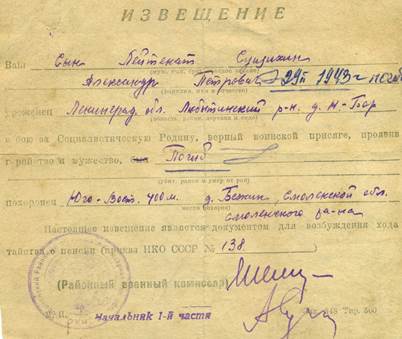 ИЗВЕЩЕНИЕ
Ваш Сын Лейтенант
(муж, сын, брат,
Александр Петрович 29 1943 г погиб
(фамилия, имя и отчество)
уроженец Ленинград. обл. Любытинский р-н. д. Н-Бор
(область, район, деревня и село)
в бою за Социалистическую Родину, верный воинской присяге, проявив
геройство и мужество, был Погиб
(убит, ранен и умер от ран)
похоронен Юго-Вост. 400 м. д. Смоленской обл.
Смоленского ра-на
Настоящее извещение является документом для возбуждения хода
тайства о пенсии (приказ НКО СССР № 138.)
(Районный военный комиссар)
М.П. Начальник 1-й части